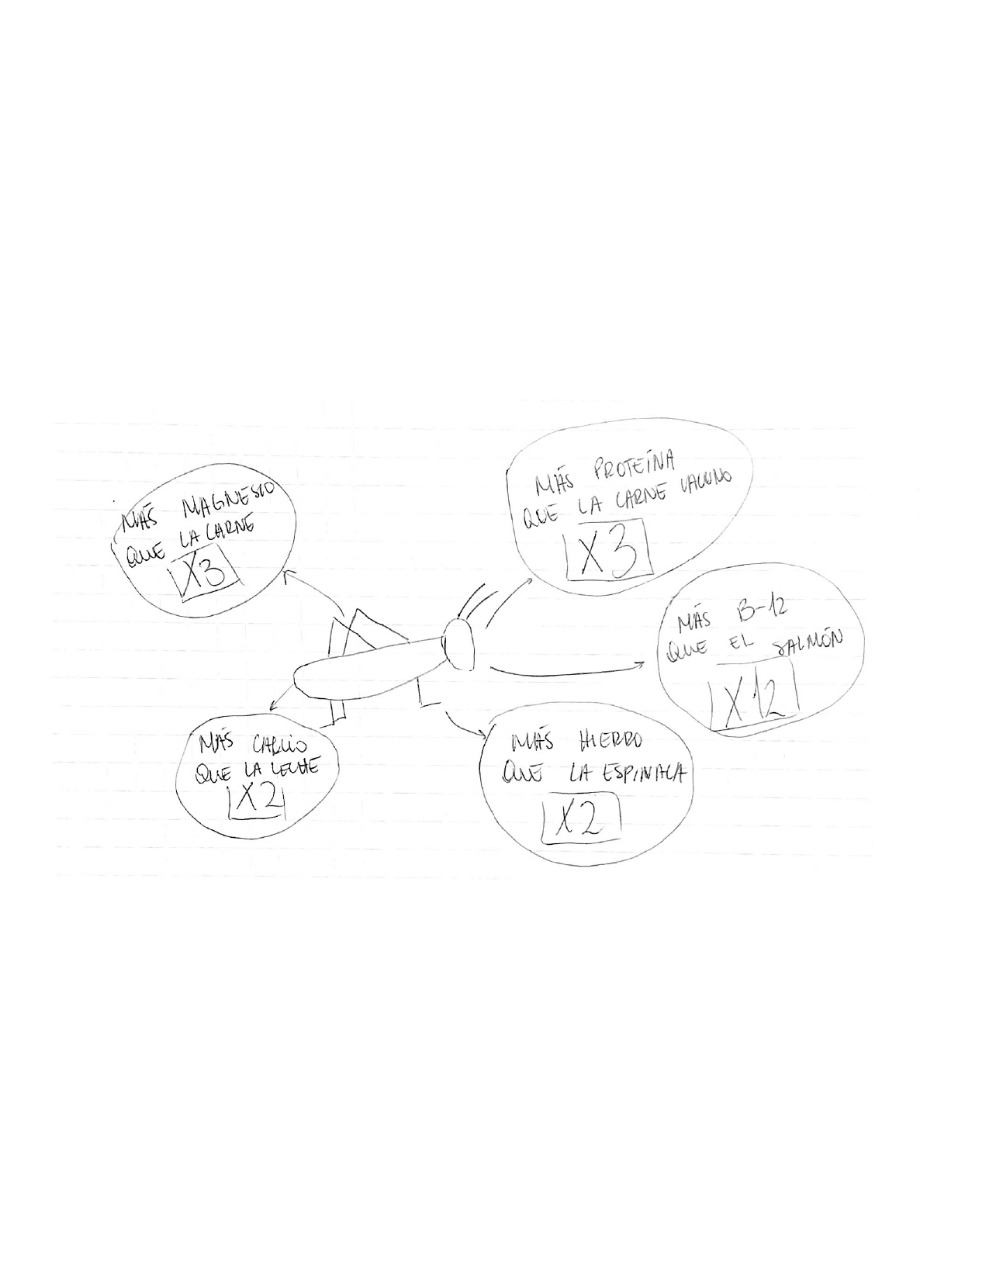 MÁS MAGNESIO
QUE LA CARNE
X3
MÁS PROTEÍNA
QUE LA CARNE VACUNO
X3
MÁS B-12
QUE EL SALMÓN
X12
MÁS CALCIO
QUE LA LECHE
X2
MÁS HIERRO
QUE LA ESPINACA
X2